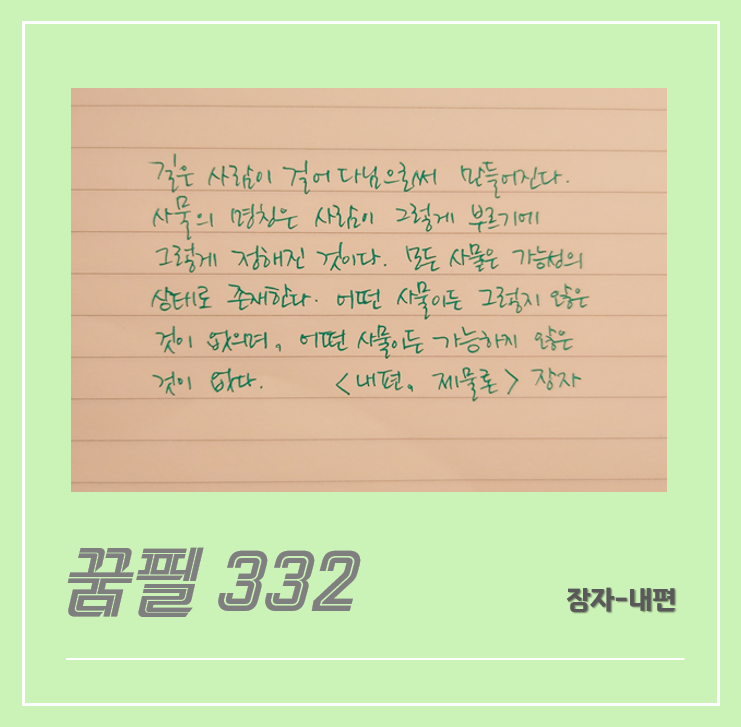 길은 사람이 걸어 다님으로써 만들어진다.
사물의 명칭은 사람이 그렇게 부르기에
그렇게 정해진 것이다. 모든 사물은 가능성의
상태로 존재한다. 어떤 사물이든 그렇지 않은
것이 없으며, 어떤 사물이든 가능하지 않은
것이 없다. <내편, 제물론> 장자
꿈필 332
장자-내편